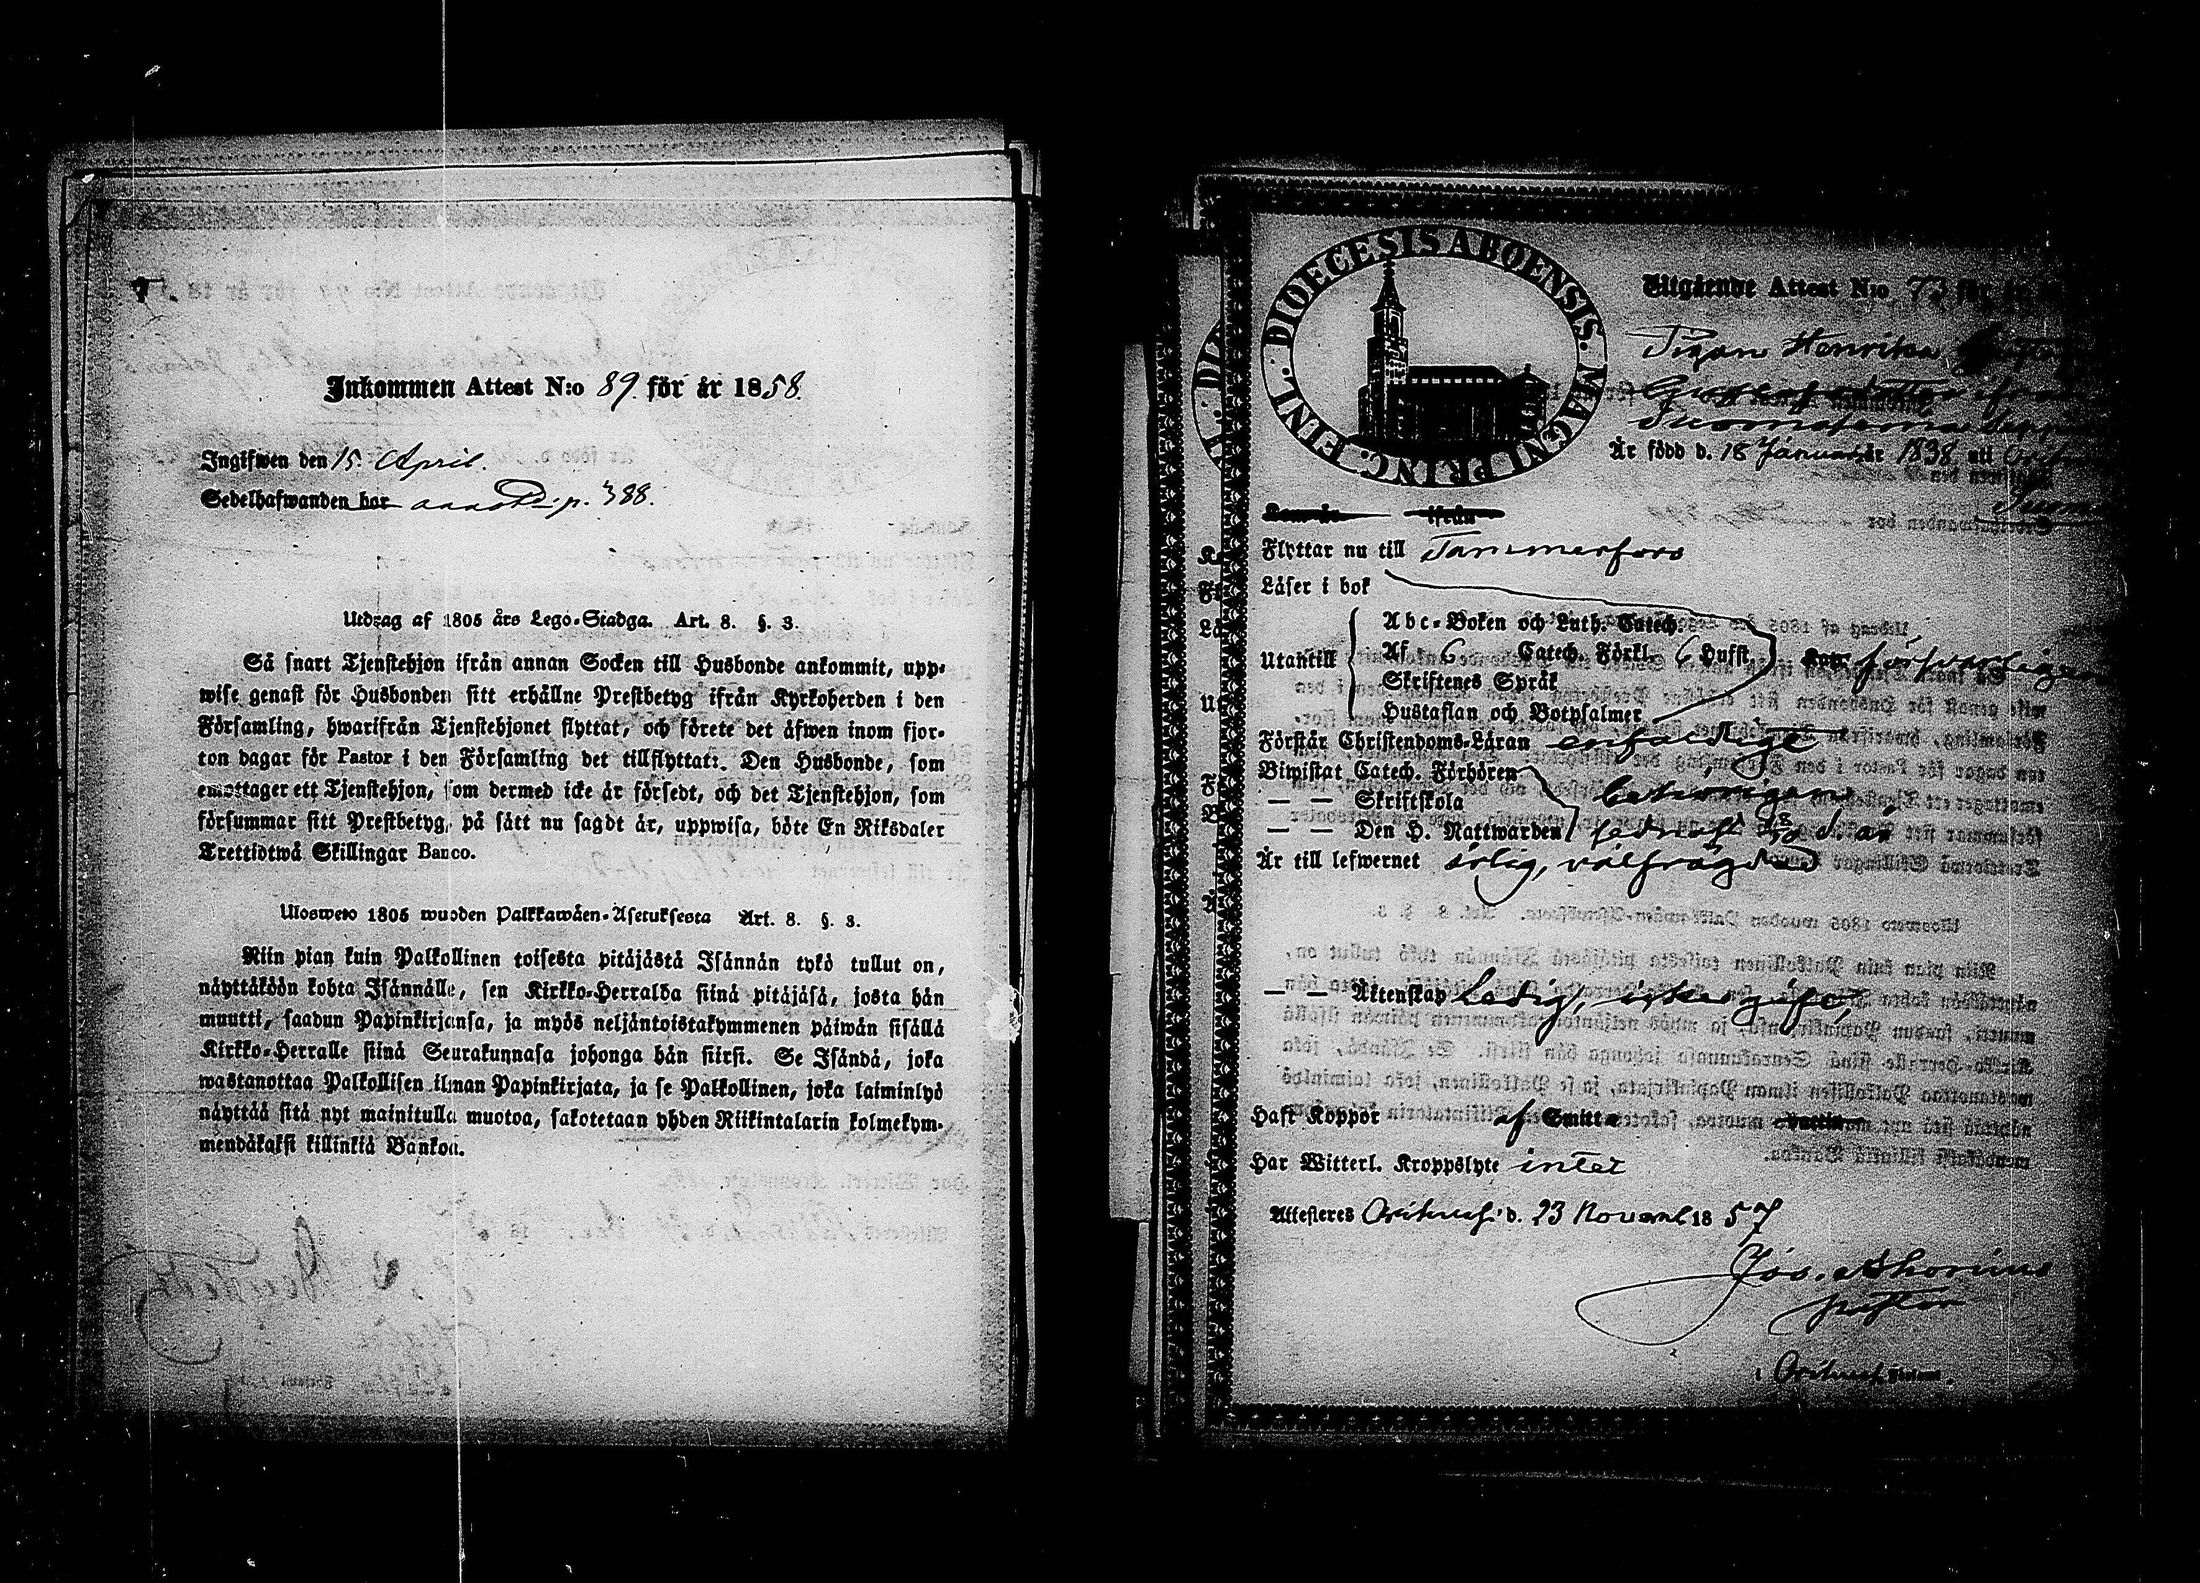 Inkommen Attest N:o 89. för år 1858.
Ingifwen den 15. April.
Sedelhafwanden bor p. 388.
Utdrag af 1805 års Lego-Stadga. Art. 8. §. 3.
Så snart Tjenstehjon ifrån annan Socken till Husbonde ankommit, upp-
wise genast för Husbonden sitt erhållne Prestbetyg ifrån Kyrkoherden i den
Församling, hwarifrån Tjenstehjonet flyttat, och förete det äfwen inom fjor-
ton dagar för Pastor i den Församling det tillflyttat. Den Husbonde, som
emottager ett Tjenstehjon, som dermed icke är försedt, och det Tjenstehjon, som
försummar sitt Prestbetyg, på sätt nu sagdt är, uppwisa, böte En Riksdaler
Trettiotwå Skillingar Banco.
Uloswelo 1805 wuoden Palkkawäen-Asetuksesta Art. 8. §. 3.
Niin pian kuin Palkollinen toisesta pitäjästä Isännän tykö tullut on,
näyttäköön kohta Isännälle, sen Kirkko-Herralda siinä pitäjäsä, josta hän
muutti, saadun Papinkirjansa, ja myös neljäntoistakymmenen päiwän sisällä
Kirkko-Herralle siinä Seurakunnasa johonga hän siirsi. Se Isändä, joka
wastanottaa Palkollisen ilman Papinkirjata, ja se Palkollinen, joka laiminlyö
näyttää sitä nyt mainitulla muotoa, sakotetaan yhden Riikintalarin kolmekym-
mendäkaksi killinkiä Bankoa.
DIOECESIS ABOENSIS. MAGNI PRINC. FINL.
Utgående Attest N:o 73 för år
Pigan Henrika
Är född d. 18 Januari år 1838 uti
Som är ifrån
Flyttar nu till Tammerfors
Läser i bok
Utantill
Abc-Boken och Luth. Catech.
Af 6 Catech. Förkl. 6 Hufst.
Skriftenes Språk
Hustaflan och Botpsalmer
försvarligen
Förstår Christendoms-Läran enfaldigt
Biwistat Catech. Förhören
— — Skriftskola behörigen
— — Den H. Nattwarden d. år
Är till lefwernet ärlig, välfrägdad
— — Äktenskap Ledig, icke gift,
Haft Koppor af Smitta
Har Witterl. Kroppslyte intet
Attesteres d. 23 Novemb 1857
Pastor